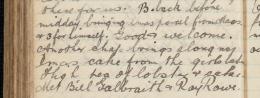 there for us. B. back before
midday bringing us a parcel from
& 3 for himself. Good & welcome.
Another chap brings along my
Xmas cake from the girls lot
High tea of lobster & cake.
Met Bill Galbraith & Ray Rowe.